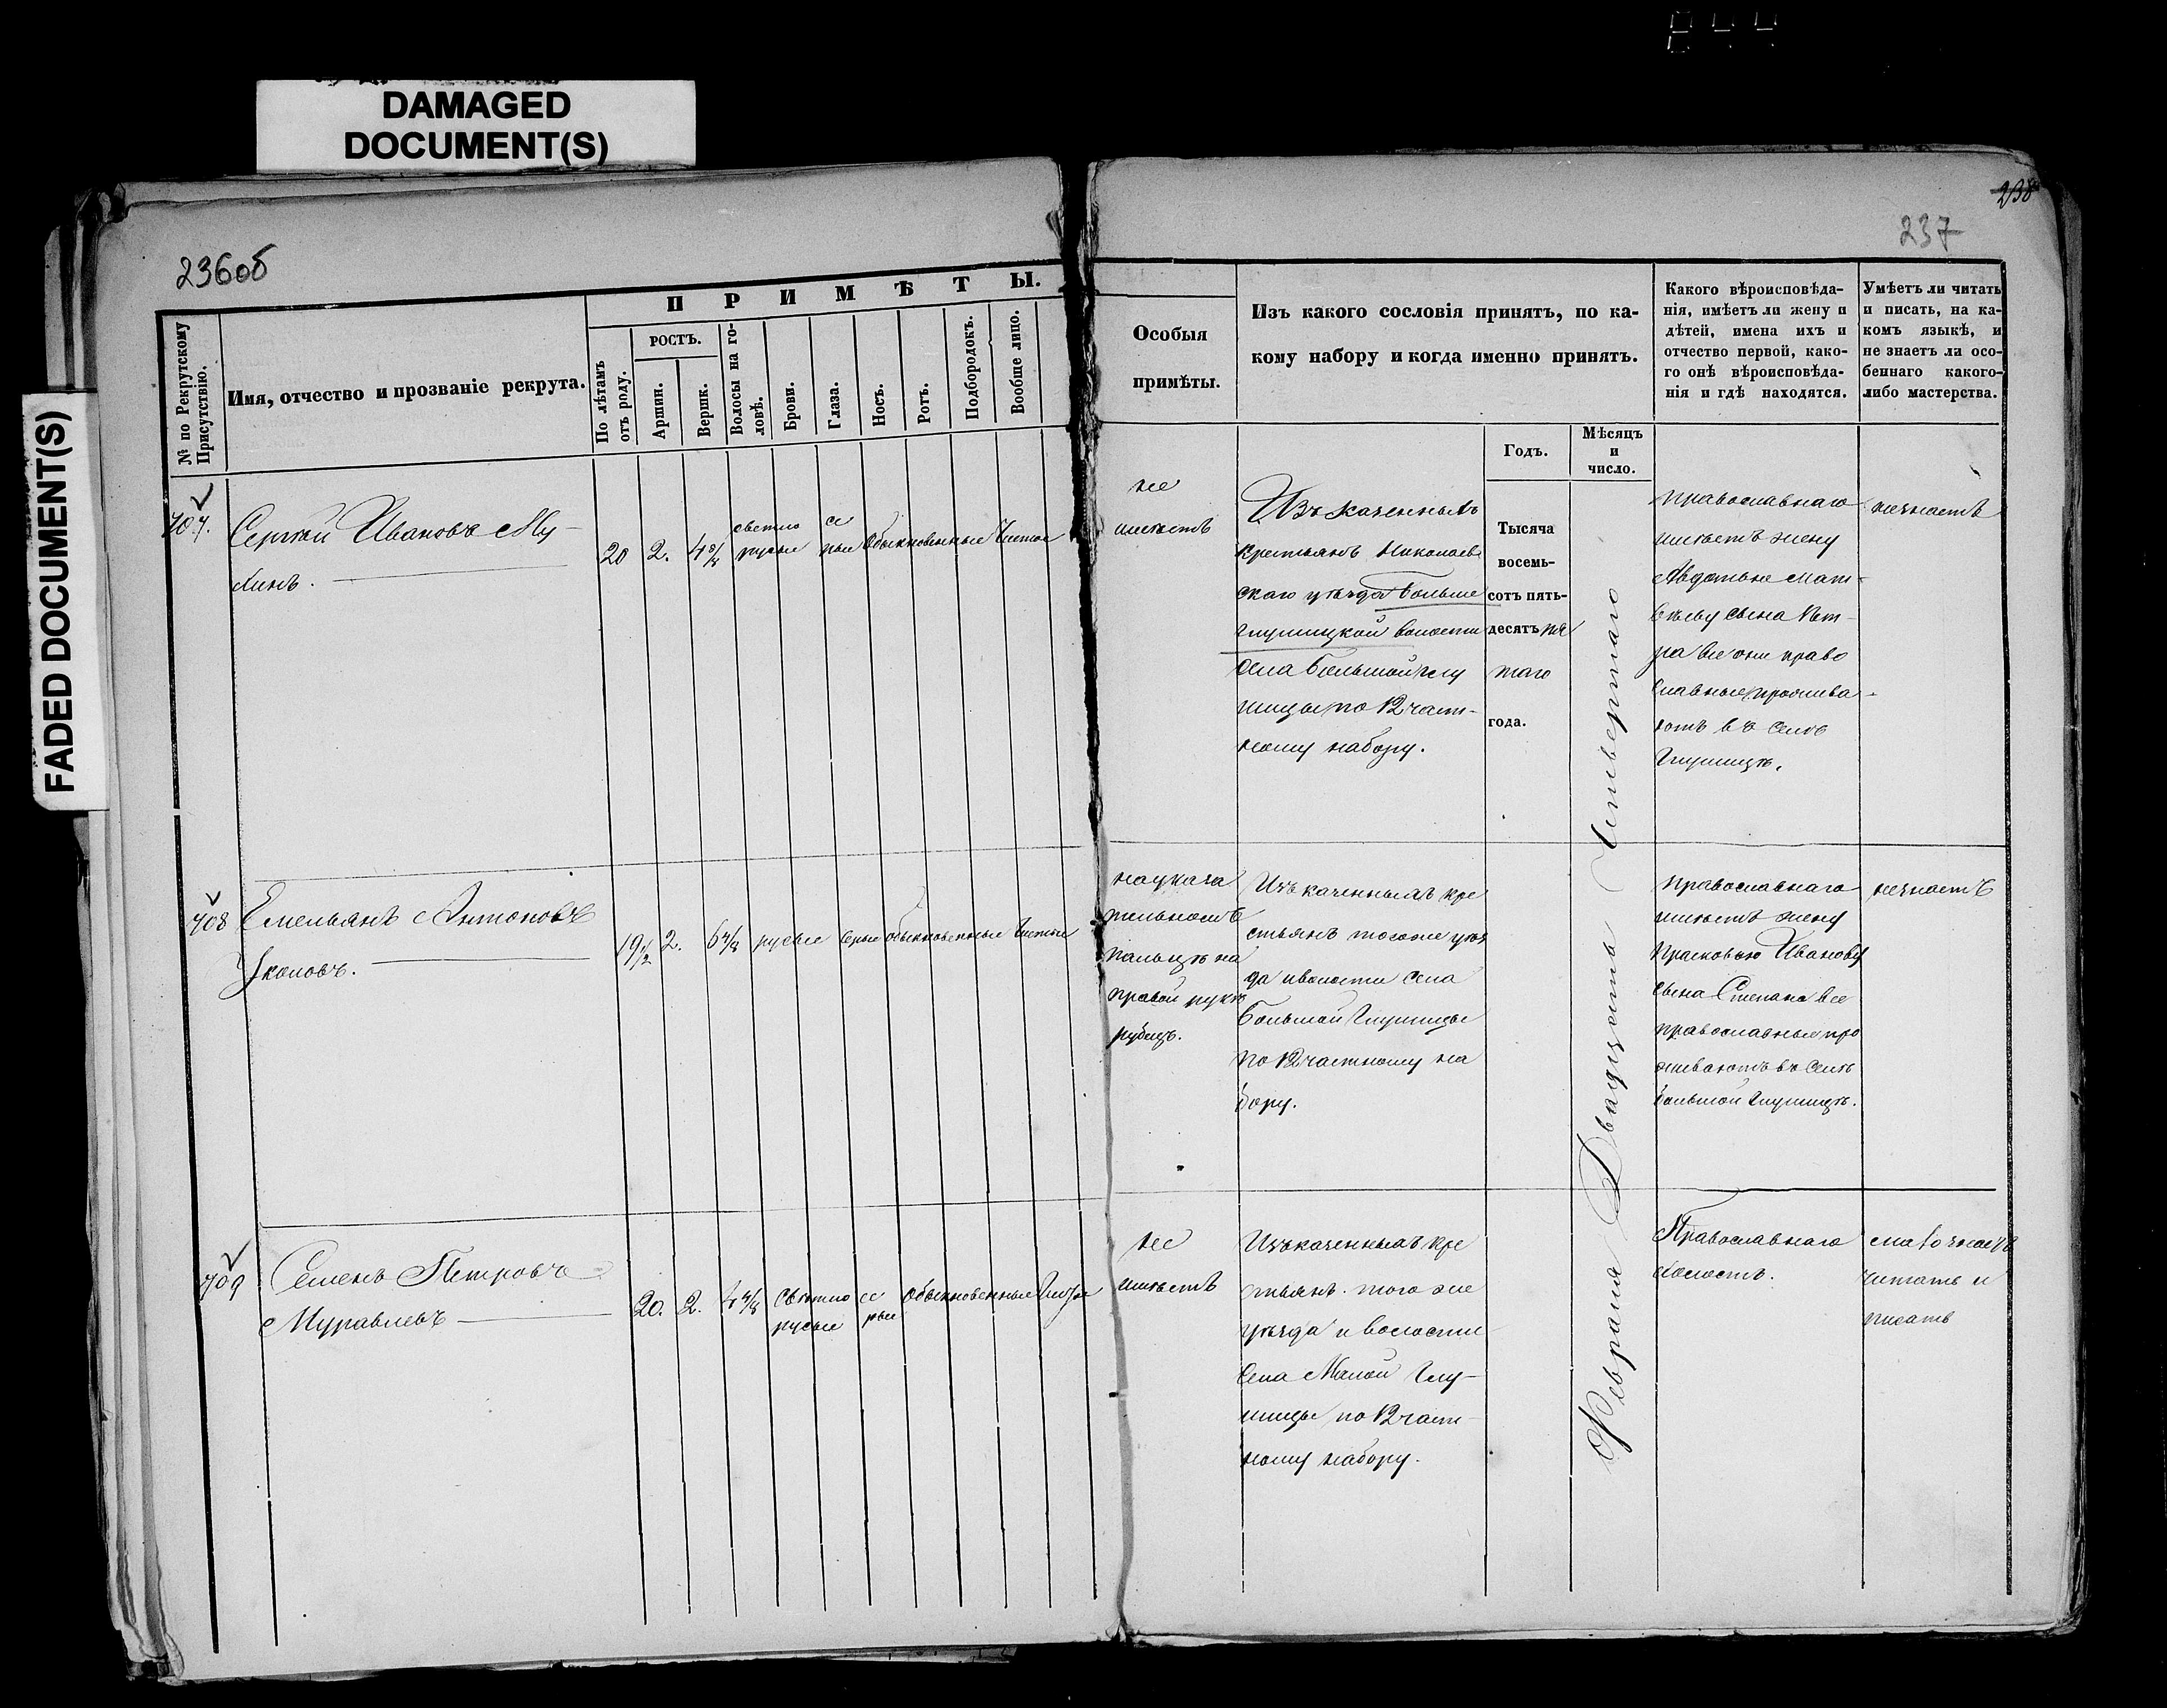 DAMAGED
DOCUMENT(S)
FADED DOCUMENT(S)
236об
238
237
П Р И М Ѣ Т Ы.
№ по Рекрутскому
Присутствію.
Имя, отчество и прозваніе рекрута.
По лѣтамъ
отъ роду.
РОСТЪ.
Аршин.
Вершк.
Волосы на го-
ловѣ.
Брови.
Глаза.
Носъ.
Ротъ.
Подбородокъ.
Вообще лицо.
Особыя
примѣты.
Изъ какого сословія принятъ, по ка-
кому набору и когда именно принятъ.
Годъ.
Мѣсяцъ
и
число.
Какого вѣроисповѣда-
нія, имѣетъ ли жену и
дѣтей, имена ихъ и
отчество первой, како-
го онѣ вѣроисповѣда-
нія и гдѣ находятся.
Умѣетъ ли читать
и писать, на ка-
комъ языкѣ, и
не знаетъ ли осо-
беннаго какого-
либо мастерства.
707.
Сергѣй Ивановъ Му-
хинъ.
20
2.
4
светло
русые
се
рые
Обыкновенные
Чистое
не
имѣетъ
Изъ казенныхъ
крестьянъ Николаев
скаго уѣзда Больше
глушицкой волости
села Большой глу
шицы по 12 част-
ному набору.
Тысяча
восемь-
сотъ пять-
десятъ пя
таго
года.
Февраля Двадцать Четвертаго
православнаго
имѣетъ жену
Авдотью Мат-
вѣеву сына Пет-
ра все они право
славные прожива-
ютъ въ селѣ
Глушицѣ.
незнаетъ
708
Емельянъ Антоновъ
Уколовъ.
19 1/2
2.
6
русые
серые
обыкновенные
Чистое
на указа
тельномъ
пальцѣ на
правой рукѣ
рубецъ.
Изъ казенныхъ кре
стьянъ тогоже уѣз
да и волости села
Большой Глушицы
по 12 частному на
бору.
православнаго
имѣетъ жену
Прасковью Иванову
сына Степана все
православные про
живаютъ въ селѣ
большой Глушицѣ.
незнаетъ
709
Семенъ Петровъ
Муравлевъ
20.
2.
4
Свѣтло
русые
се
рые
Обыкновенные
Чистое
не
имѣетъ
Изъ казенныхъ кре
стьянъ. того же
уѣзда и волости
села Малой Глу-
шицы по 12 част-
ному набору.
Православнаго
холостъ.
читать и
писать